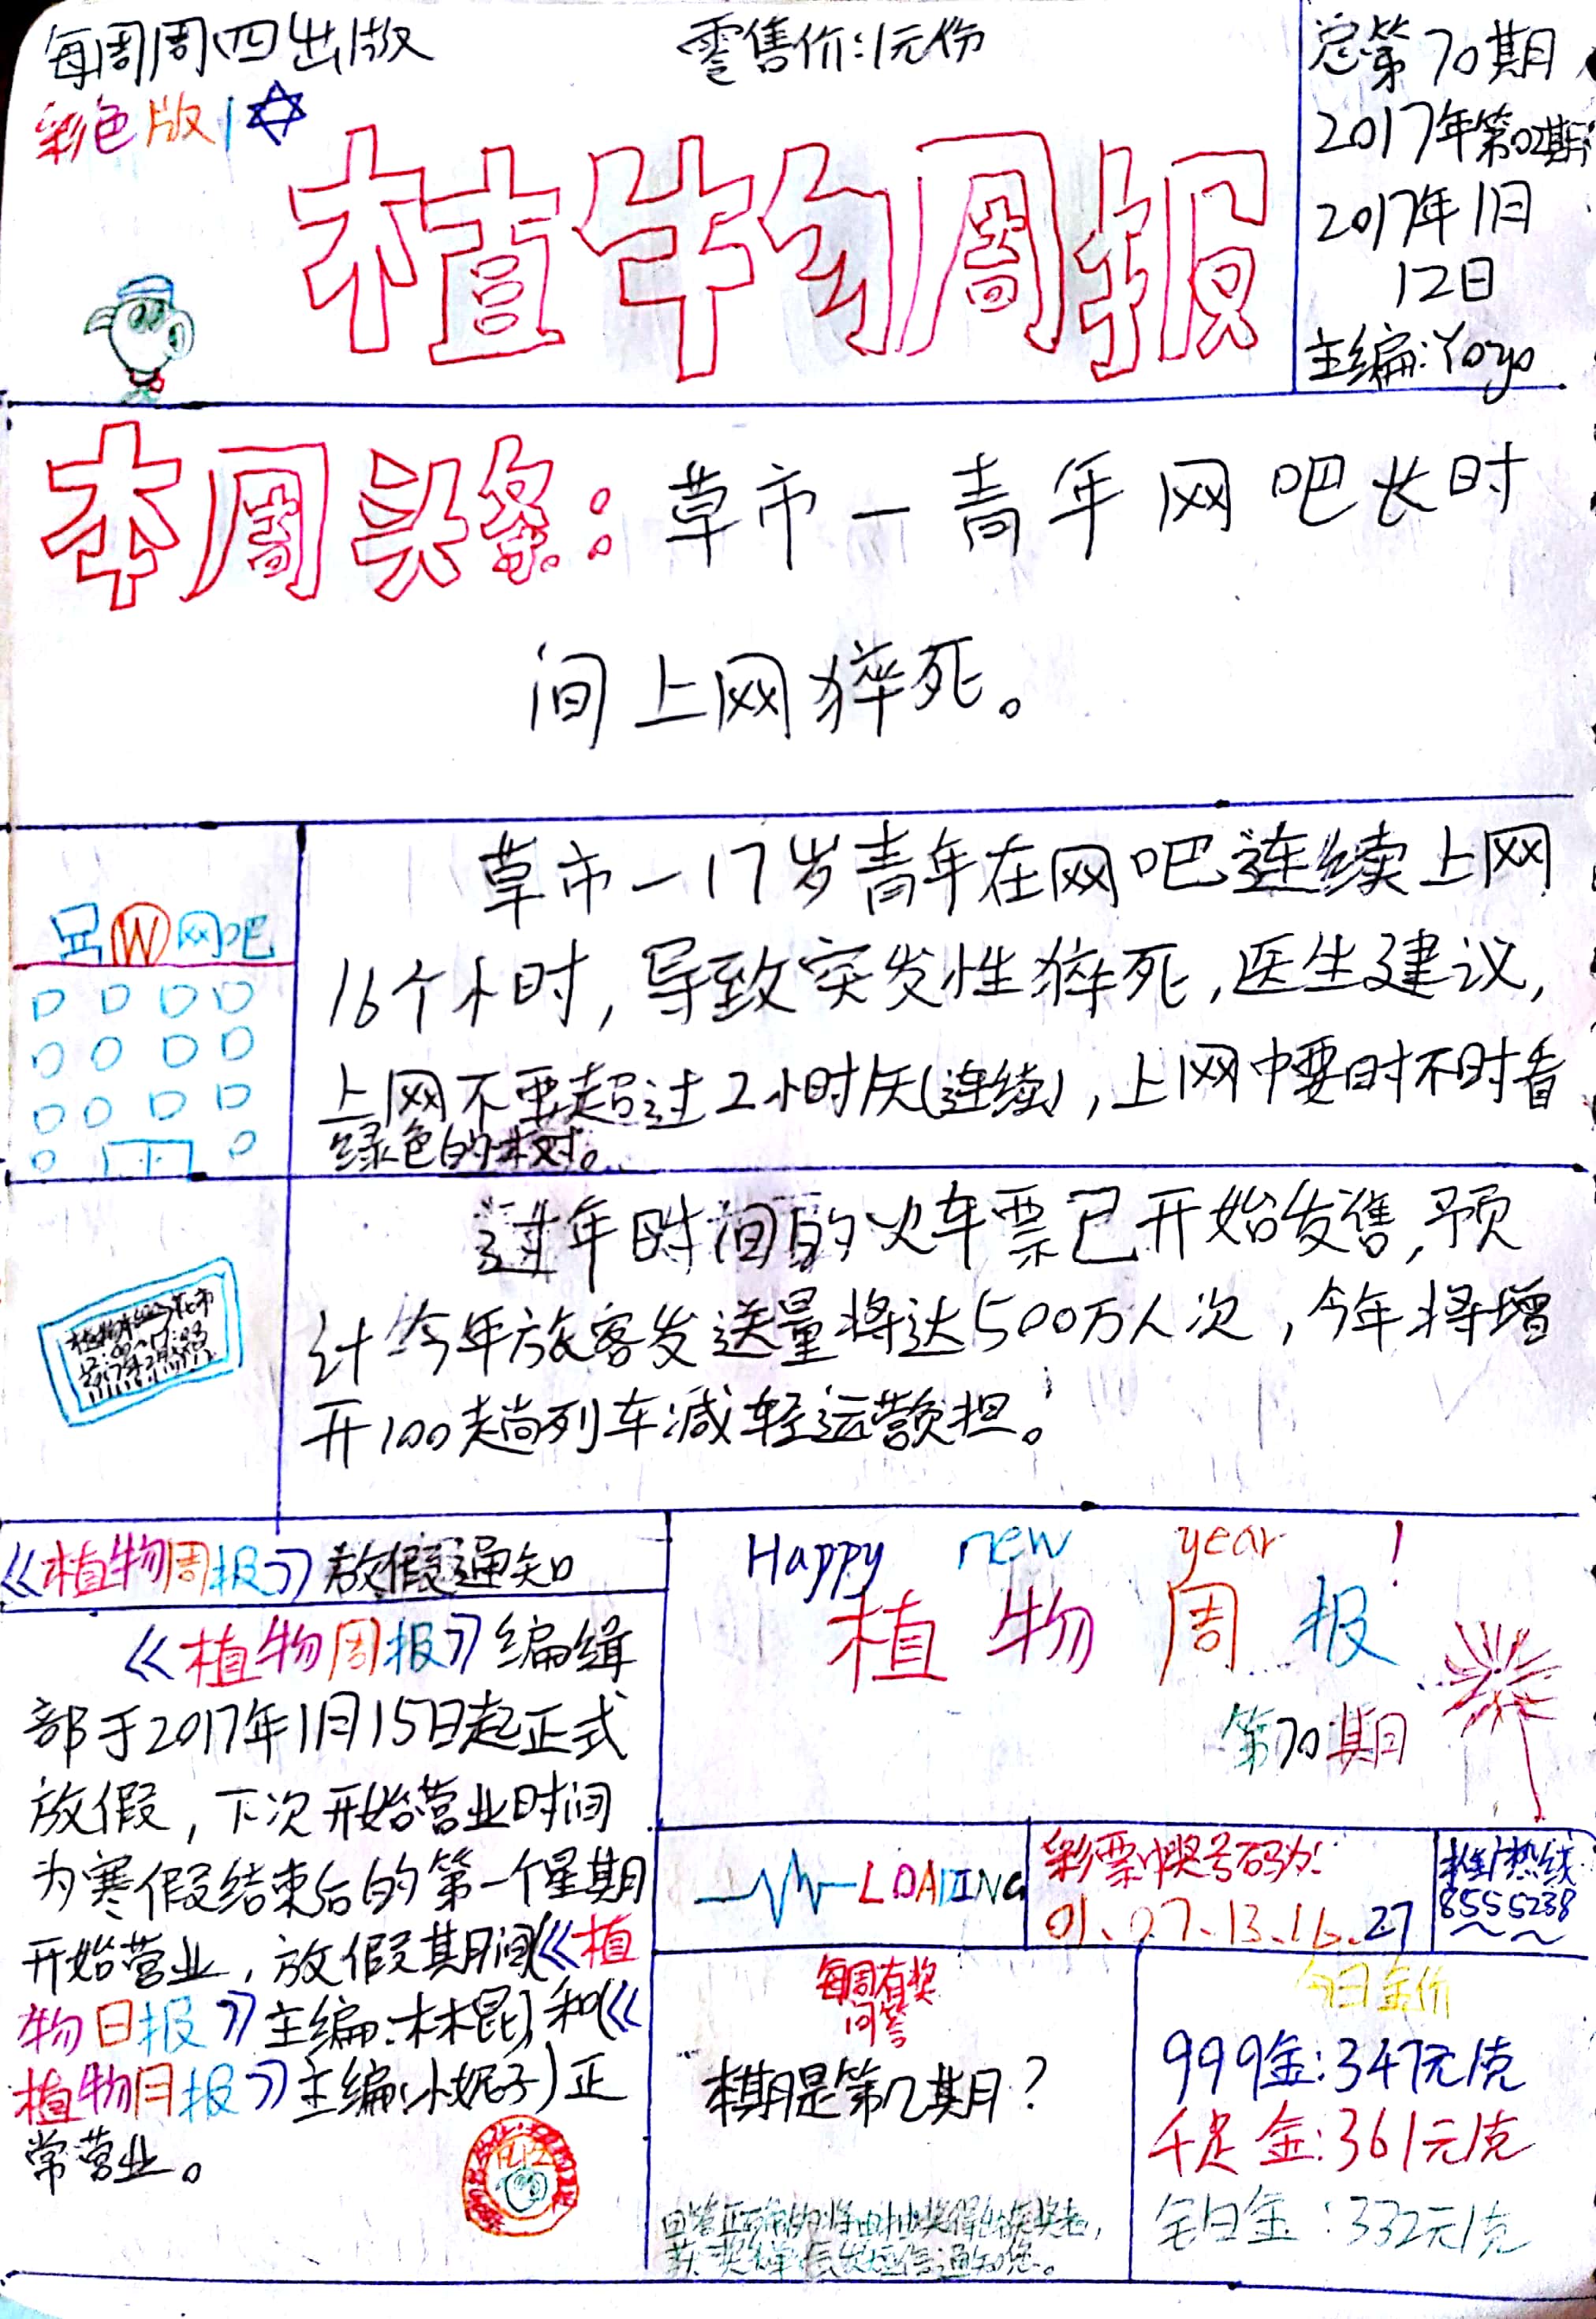 每周周四出版
零售价:1元/份
彩色版
植物周报
总第70期
2017年第02期
2017年1月
12日
主编:Yoyo
本周头条:草市一青年网吧长时
间上网猝死。
网吧
草市一17岁青年在网吧连续上网
16个小时,导致突发性猝死,医生建议,
上网不要超过2小时/天(连续),上网中要时不时看
绿色的树。
过年时间的火车票已开始发售,预
计今年旅客发送量将达500万人次,今年将增
开100趟列车减轻运营负担。
《植物周报》放假通知
《植物周报》编缉
部于2017年1月15日起正式
放假,下次开始营业时间
为寒假结束后的第一个星期
开始营业,放假期间《植
物日报》主编:林昆)和《
植物月报》主编:小妮子)正
常营业。
Happy new year!
植物周报
第70期
LOADING
彩票中奖号码为:
01、07、13、16、27
热线
8555238
每周有奖
问答
本期是第几期?
今日金价
999金:347元/克
千足金:361元/克
铂金:332元/克